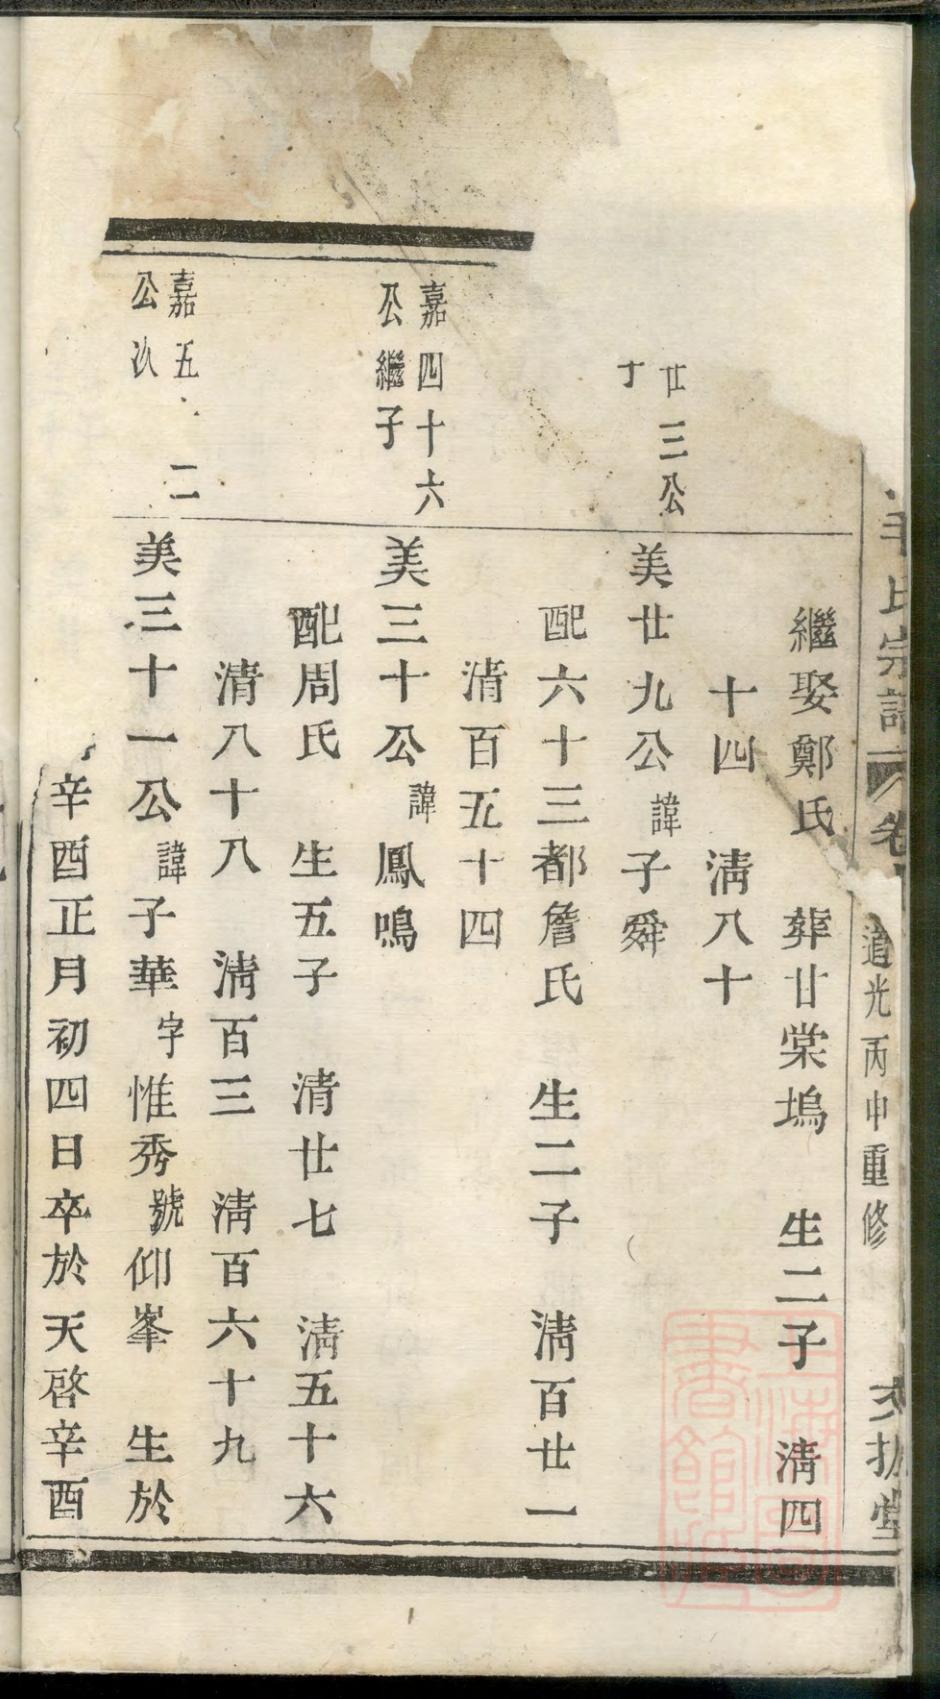 氏宗譜
卷
道光丙申重修
堂
繼娶鄭氏 葬甘棠塢 生二子 清四
十四 清八十
廿三公
美廿九公諱子舜
配六十三都詹氏 生二子 清百廿一
清百五十四
嘉四十六
公繼子
美三十公諱鳳鳴
配周氏 生五子 清廿七 清五十六
清八十八 清百三 清百六十九
嘉五 二
公次
美三十一公諱子華字惟秀號仰峯 生於
辛酉正月初四日卒於天啓辛酉
上海圖書館藏